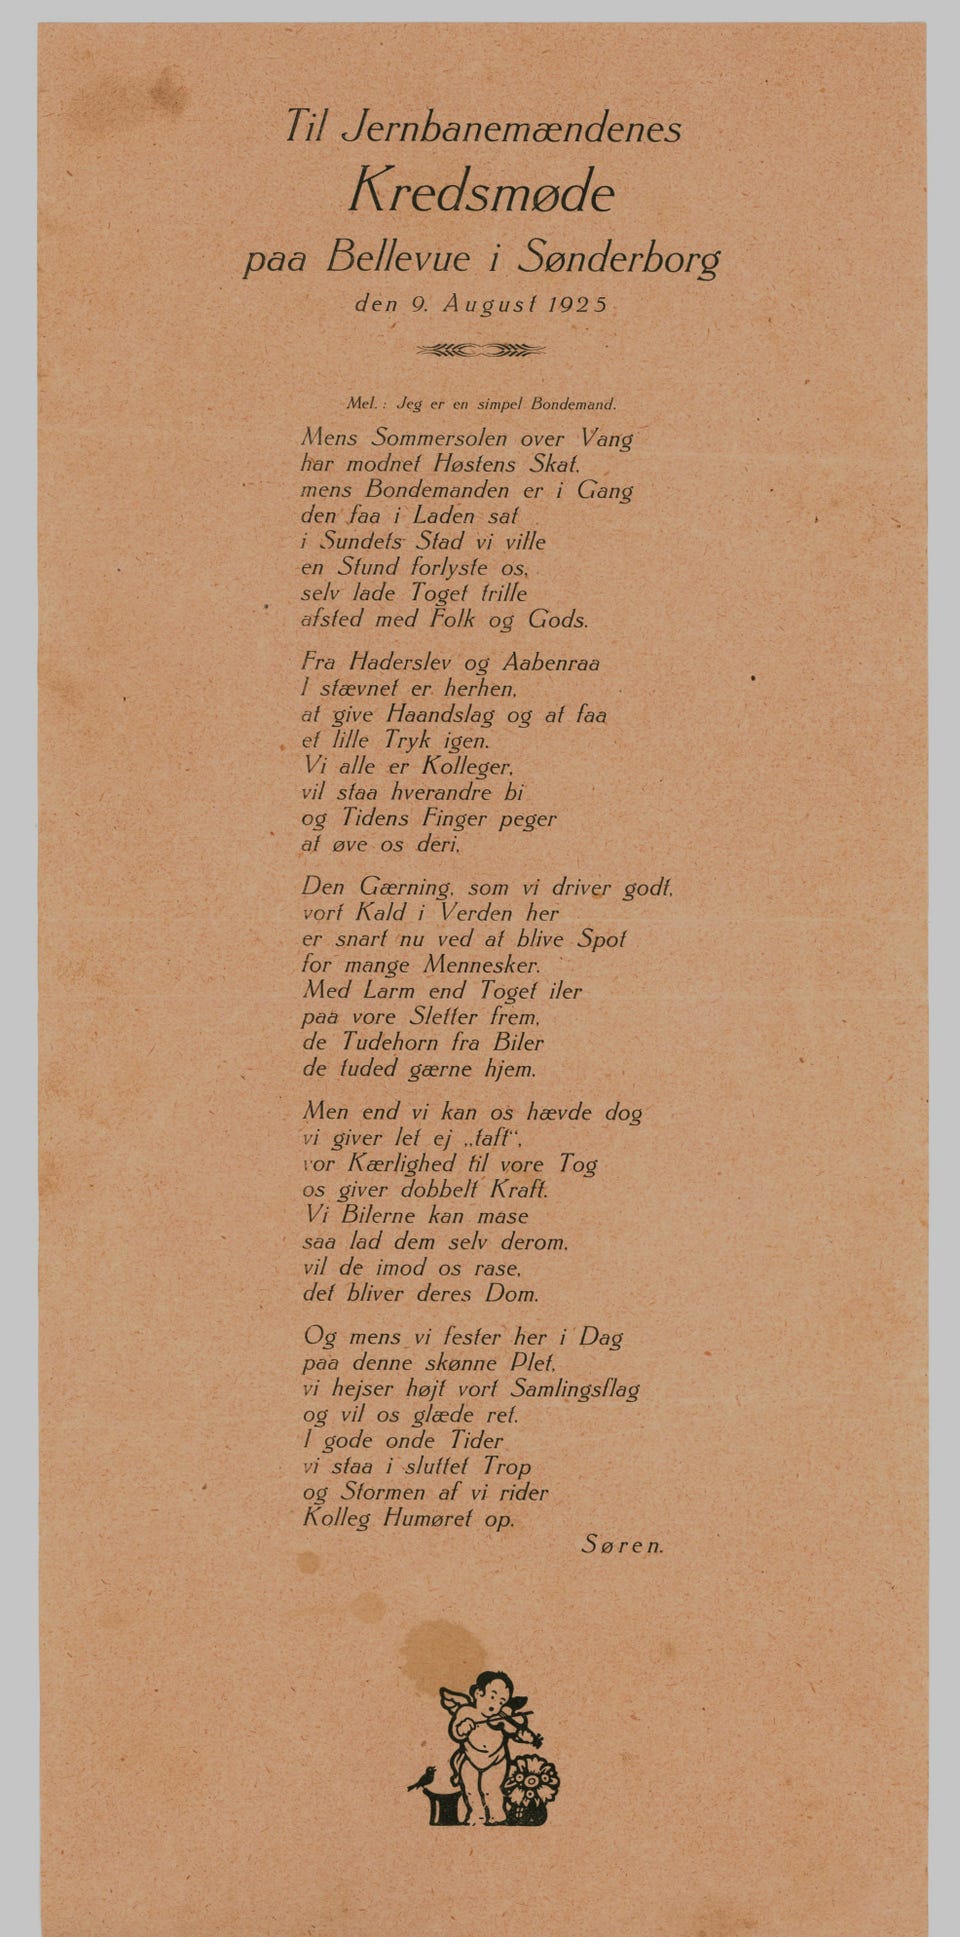 Til Jernbanemændenes
Kredsmøde
paa Bellevue i Sønderborg
den 9. August 1925
Mel.: Jeg er en simpel Bondemand.
Mens Sommersolen over Vang
har modnet Høstens Skat,
mens Bondemanden er i Gang
den faa i Laden sat
i Sundets Stad vi ville
en Stund forlyste os,
selv lade Toget trille
afsted med Folk og Gods.
Fra Haderslev og Aabenraa
I stævnet er herhen,
at give Haandslag og at faa
et lille Tryk igen.
Vi alle er Kolleger,
vil staa hverandre bi
og Tidens Finger peger
at øve os deri.
Den Gærning, som vi driver godt,
vort Kald i Verden her
er snart nu ved at blive Spot
for mange Mennesker.
Med Larm end Toget iler
paa vore Sletter frem,
de Tudehorn fra Biler
de tuded gærne hjem.
Men end vi kan os hævde dog
vi giver let ej „taft“,
vor Kærlighed til vore Tog
os giver dobbelt Kraft.
Vi Bilerne kan mase
saa lad dem selv derom,
vil de imod os rase,
det bliver deres Dom.
Og mens vi fester her i Dag
paa denne skønne Plet,
vi hejser højt vort Samlingsflag
og vil os glæde ret.
I gode onde Tider
vi staa i sluttet Trop
og Stormen af vi rider
Kolleg Humøret op.
Søren.